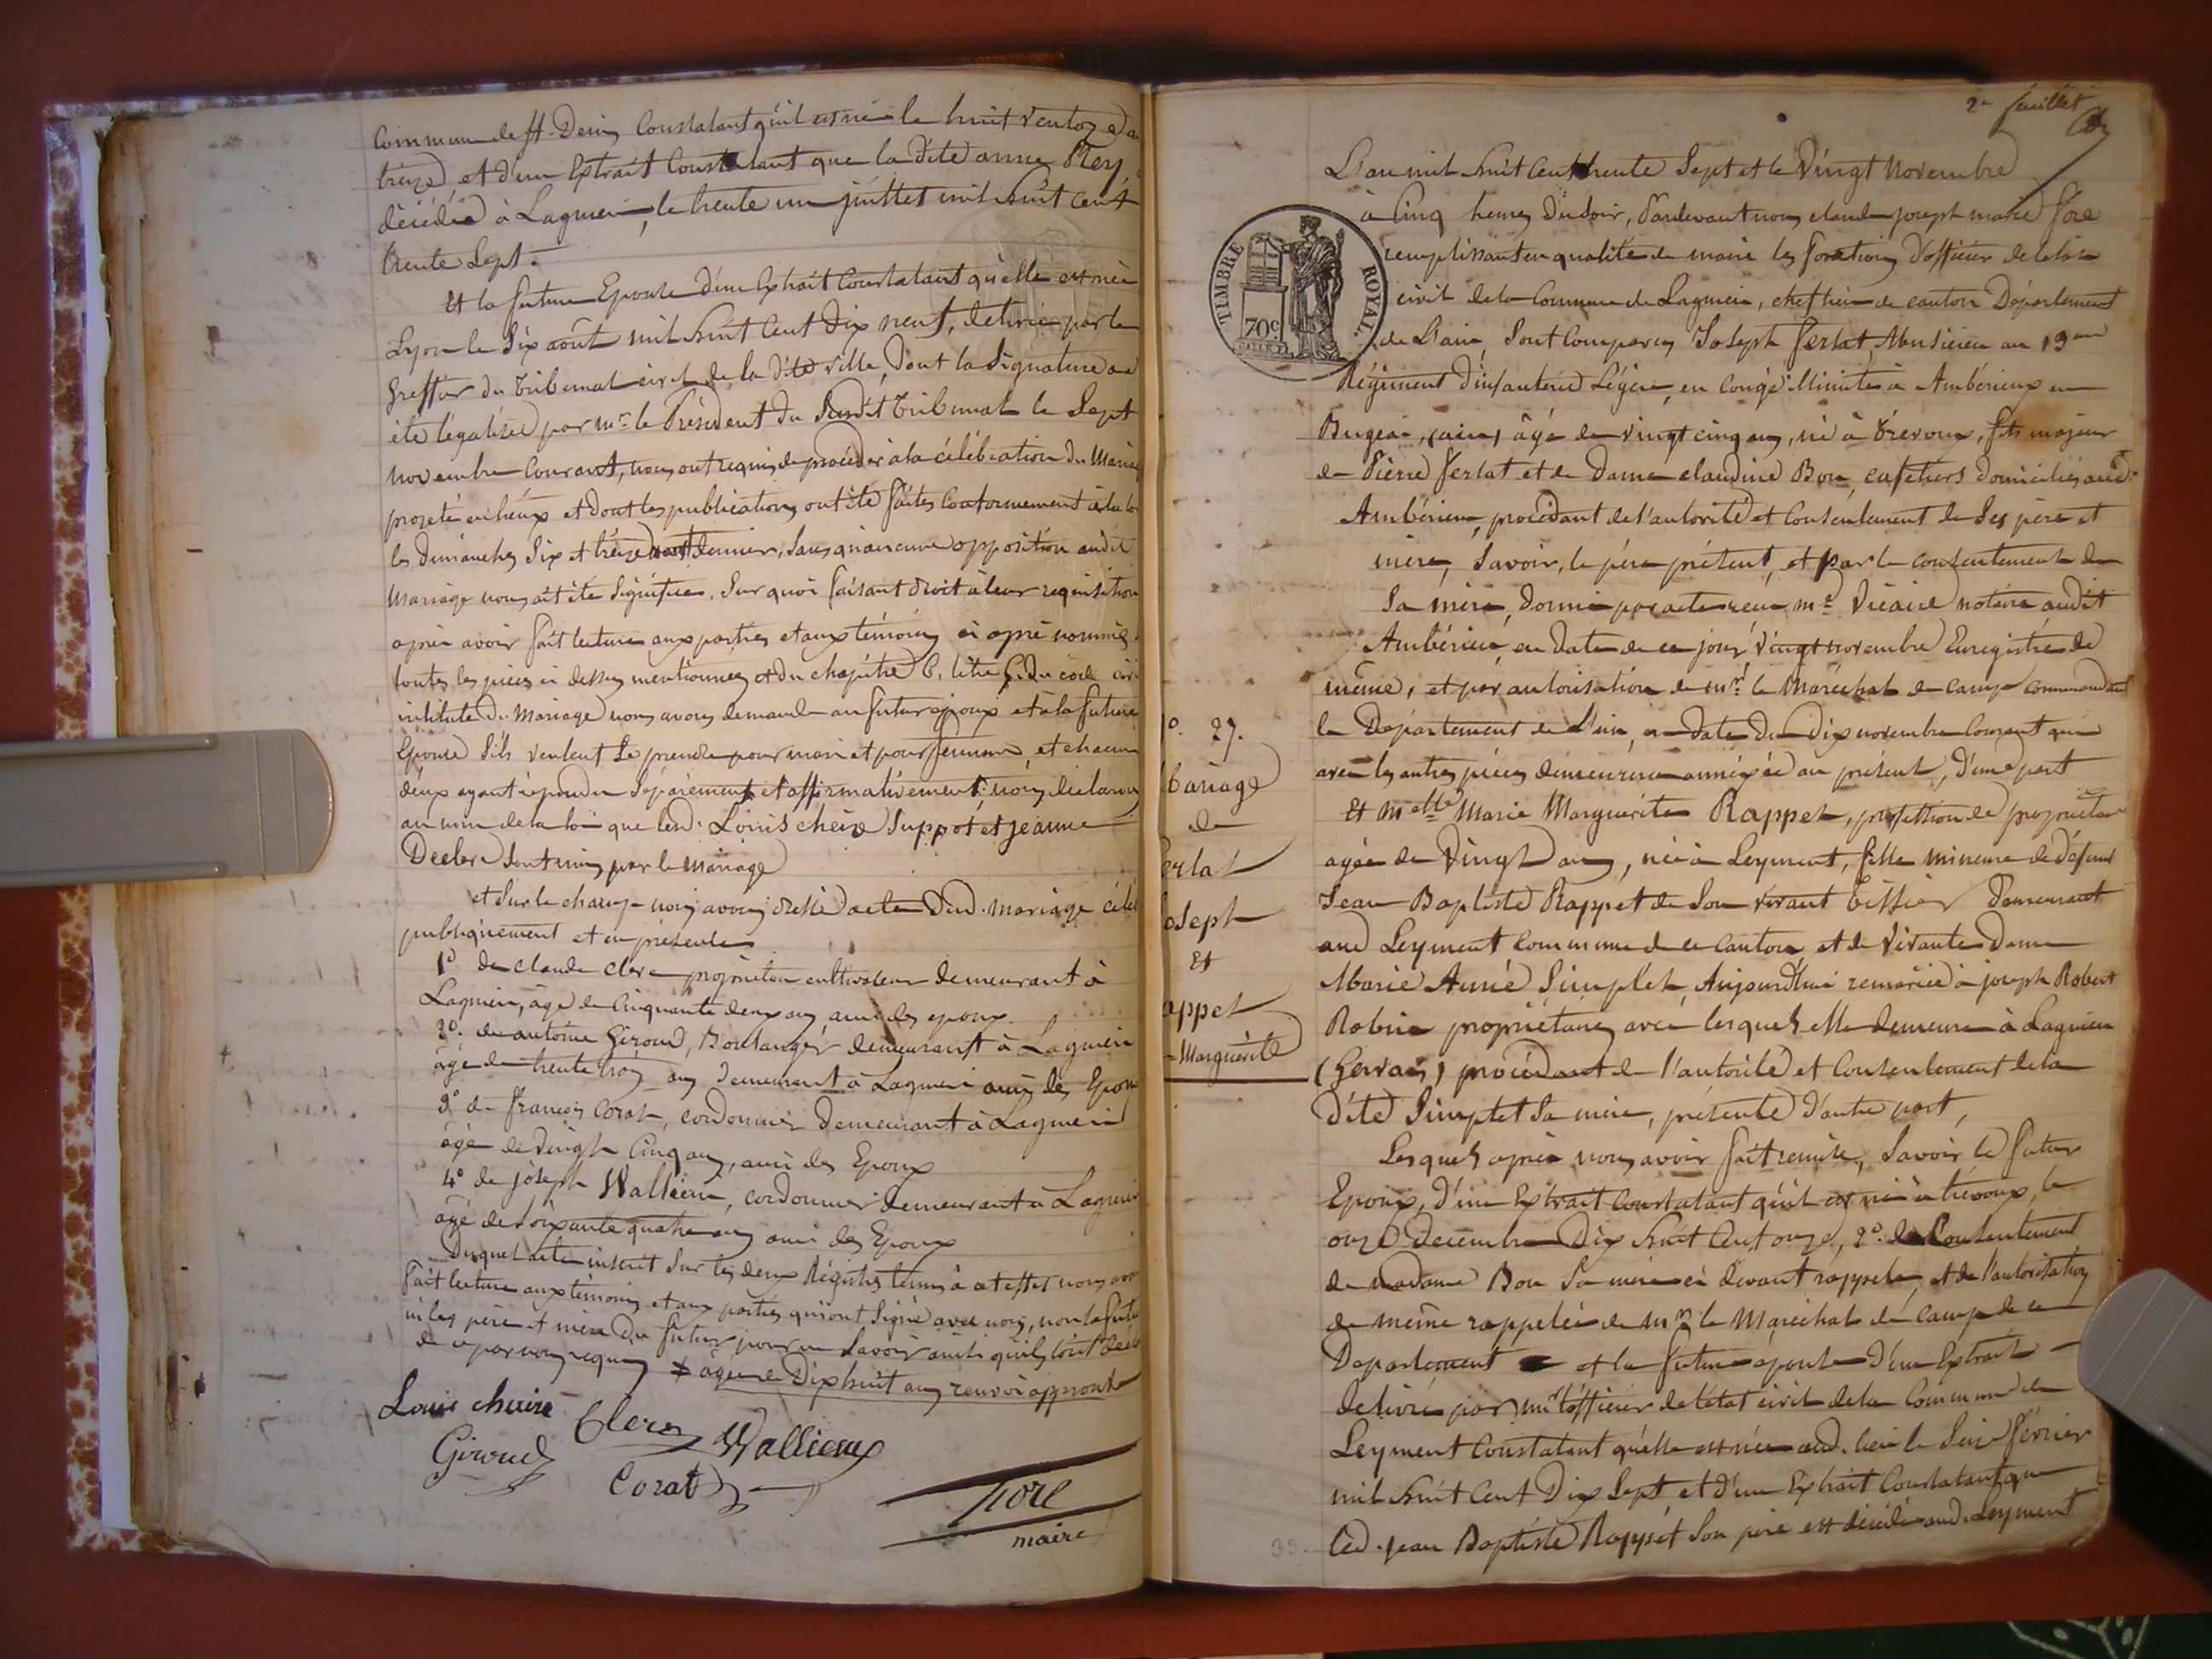 Commune de St. Denis Constatant qu'il est né le huit Ventoze an
treize et d'un Extrait Constatant que la dite anne Rey
décédée à Lagnieu, le trente un juillet mil huit cent
trente Sept.
Et la future Epouse d'un Extrait Constatant qu'elle est née
Lyon le Six août mil huit Cent Dix neuf, délivré par le
Greffier du tribunal civil de la dite ville, dont la Signature a
été légalisée par Mr. le Président du Susdit tribunal le Sept
novembre Courant, nous ont requis de procéder à la célébration du Mariage
projeté entr'eux et dont les publications ont été faites Conformement à la loi
les dimanches Six et treize dernier, Sans qu'aucune opposition audit
Mariage nous ait été Signifiée, Sur quoi faisant droit à leur requisition
après avoir fait lecture aux parties et aux témoins ci après nommés
toutes les pièces ci dessus mentionnées et du chapitre 6, titre 5 du code civil
intitulé du Mariage nous avons demandé au futur époux et à la future
Epouse S'ils veulent Se prendre pour mari et pour femme, et chacun
deux ayant répondu Séparément et affirmativement nous déclarons
au nom de la loi que led. Louis cheize Suppot et jeanne
Decler Sont unis par le Mariage
et Sur le champ nous avons dressé acte dud. mariage célébré
publiquement et en présence
1o. de claude clere propriétaire cultivateur demeurant à
Lagnieu, âgé de Cinquante deux ans ami des epoux
2o. de antoine Giroud, Boulanger demeurant à Lagnieu
âgé de trente trois ans demeurant à Lagnieu ami des Epoux
3o de françois Corat, cordonnier demeurant à Lagnieu
âgé de vingt Cinq ans, ami des Epoux
4o de joseph Wallieux, cordonnier demeurant à Lagnieu
âgé de Soixante quatre ans ami des Epoux
Duquel acte inscrit Sur les deux Régistres tenus à cet effet nous avons
fait lecture aux témoins et aux parties qui ont Signé avec nous, non la future
ni les père et mère du futur pour ne Savoir ainsi qu'ils l'ont déclaré
de ce par nous requis + âgée de Dix huit ans renvoi approuvé
Louis cheize Clere Wallieux
Giroud Corat
fore
maire
2e feuillet
L'an mil huit Cent trente Sept et le Vingt Novembre
à Cinq heures du Soir, Pardevant nous claude joseph marie fore
remplissant en qualité de maire les fonctions d'officier de l'état
civil de la Commune de Lagnieu, chef lieu de canton Département
de L'ain, Sont Comparus Joseph ferlat, Musicien au 19eme
Régiment d'infanterie Légère, en Congé illimité à Ambérieux en
Bugeai, (ain) âgé de vingt cinq ans, né à Trévoux, fils majeur
de Pierre ferlat et de Dame claudine Bon, cafetiers domiciliés aud.
Ambérieu, procédant de l'autorité et Consentement de Ses père et
mère, Savoir, le père présent, et par le consentement de
Sa mère, donné par acte reçu me. Vicaire notaire audit
Ambérieu, en Date de ce jour Vingt novembre Enregistré de
même, et par autorisation de mr. le Maréchal de camp commandant
le Département de L'ain, en date du dix novembre Courant qui
avec les autres pièces demeurera annéxée au présent, d'une part
Et Melle Marie Marguerite Rappet, profession de propriétaire
agée de Vingt ans, née à Leyment, fille mineure de défunt
Jean Baptiste Rappet de Son vivant Tissier demeurant
aud Leyment Commune de ce canton et de Vivante Dame
Marie Anne Simplet, Aujourd'hui remariée à joseph Robert
Robin propriétaires avec lesquels elle demeure à Lagnieu
(Gervais) procédant de l'autorité et Consentement de la
dite Simplet Sa mère, présente d'autre part,
Lesquels après nous avoir fait remise, Savoir le futur
Epoux, d'un Extrait Constatant qu'il est né à trévoux, le
onze Décembre Dix huit Cent onze, 2o. du Consentement
de madame Bon Sa mère ci devant rappelé, et de l'autorisation
de même rappelée de Mr. le Maréchal de Camp de ce
Département et la future épouse d'un Extrait
délivré par mr l'officier de l'état civil de la Commune de
Leyment Constatant qu'elle est née aud. lieu le Seize février
mil huit Cent Dix Sept et d'un Extrait Constatant que
led. jean Baptiste Rappet Son père est décédé aud. Leyment
TIMBRE ROYAL
70c
o. 27.
Mariage
de
erlat
oseph
Et
appet
Marguerite
33